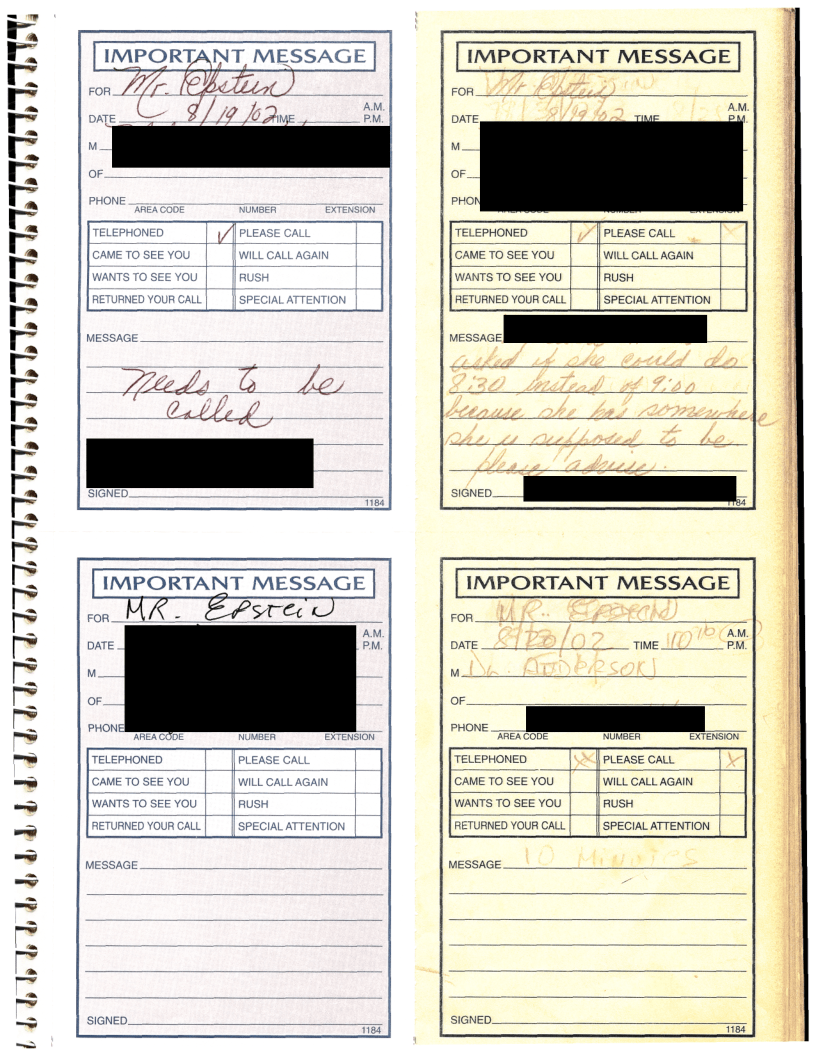 IMPORTANT MESSAGE
FOR Mr. Epstein
DATE 8/19/02 TIME A.M. P.M.
M
OF
PHONE
AREA CODE NUMBER EXTENSION
TELEPHONED ✓ PLEASE CALL
CAME TO SEE YOU WILL CALL AGAIN
WANTS TO SEE YOU RUSH
RETURNED YOUR CALL SPECIAL ATTENTION
MESSAGE
Needs to be
called
SIGNED
1184
IMPORTANT MESSAGE
FOR Mr. Epstein
DATE 8/19/02 TIME A.M. P.M.
M
OF
PHON
TELEPHONED ✓ PLEASE CALL X
CAME TO SEE YOU WILL CALL AGAIN
WANTS TO SEE YOU RUSH
RETURNED YOUR CALL SPECIAL ATTENTION
MESSAGE
asked if she could do
8:30 instead of 9:00
because she has somewhere
she is supposed to be
please advise.
SIGNED
1184
IMPORTANT MESSAGE
FOR MR. EPSTEIN
DATE A.M. P.M.
M
OF
PHONE
AREA CODE NUMBER EXTENSION
TELEPHONED PLEASE CALL
CAME TO SEE YOU WILL CALL AGAIN
WANTS TO SEE YOU RUSH
RETURNED YOUR CALL SPECIAL ATTENTION
MESSAGE
SIGNED
1184
IMPORTANT MESSAGE
FOR MR. EPSTEIN
DATE TIME A.M. P.M.
M Dr. ANDERSON
OF
PHONE
AREA CODE NUMBER EXTENSION
TELEPHONED X PLEASE CALL X
CAME TO SEE YOU WILL CALL AGAIN
WANTS TO SEE YOU RUSH
RETURNED YOUR CALL SPECIAL ATTENTION
MESSAGE 10 MINUTES
SIGNED
1184